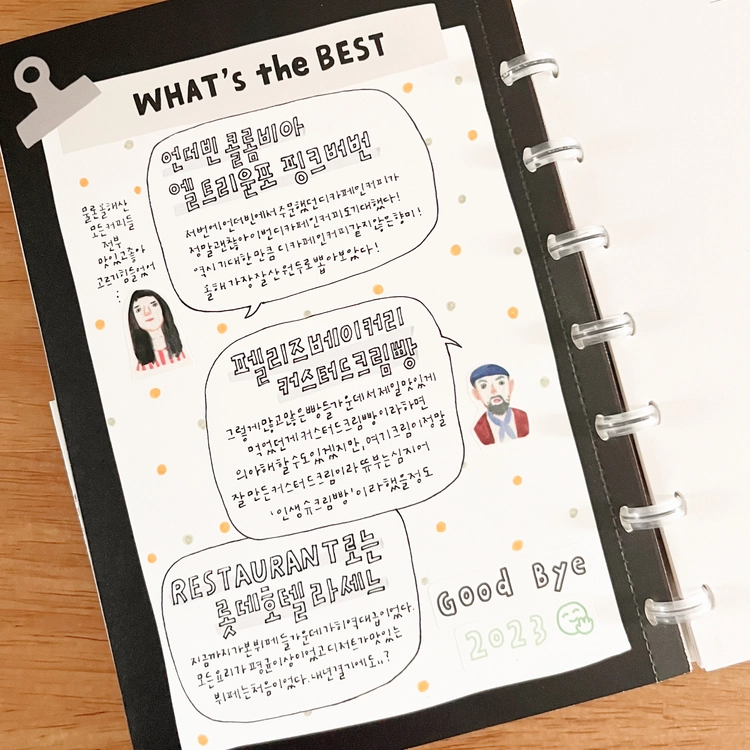 WHAT's the BEST
언더빈 콜롬비아
엘트리운포 핑크버번
저번에 언더빈에서 주문했던 디카페인커피가
정말 괜찮아 이번 디카페인커피도 기대했다!
역시 기대한 만큼 디카페인커피 같지 않은 향미!
올해 가장 잘 산 원두로 뽑아보았다!
물론 올해 산
모든 커피들
전부
맛있고 좋아
고르기 힘들었어
...
펠리즈베이커리
커스터드크림빵
그렇게 많고 많은 빵들 가운데서 제일 맛있게
먹었던게 커스터드크림빵이라하면
의아해 할 수도 있겠지만, 여기 크림이 정말
잘 만든 커스터드크림이라 뜌부는 심지어
'인생 슈크림빵'이라 했을 정도
RESTAURANT로는
롯데호텔 라세느
지금까지 가본 뷔페들 가운데 가히 역대급이었다.
모든 요리가 평균 이상이었고 디저트가 맛있는
뷔페는 처음이었다. 내년 결기에도,,?
Good Bye
2023